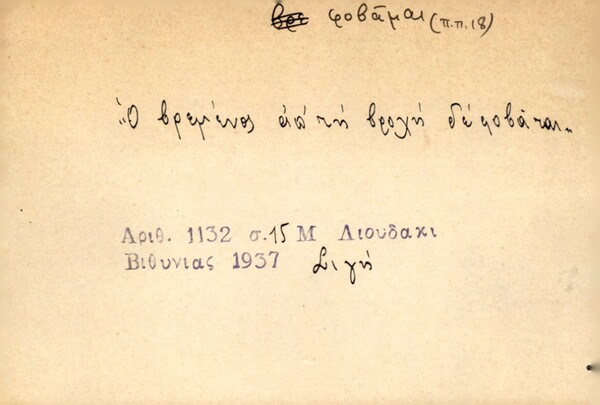 φοβᾶμαι (π.π.18)
„Ὁ βρεμένος ἀπ' τή βροχή δέ φοβᾶται„
Αριθ. 1132 σ.15 Μ Λιουδακι
Βιθυνιας 1937 Σιγή